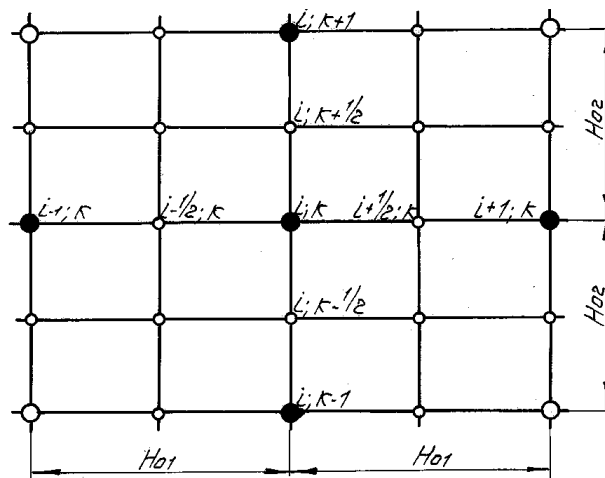 i; K+1
H02
i; K+1/2
i-1; K
i-1/2; K
i; K
i+1/2; K
i+1; K
H02
i; K-1/2
i; K-1
H01
H01